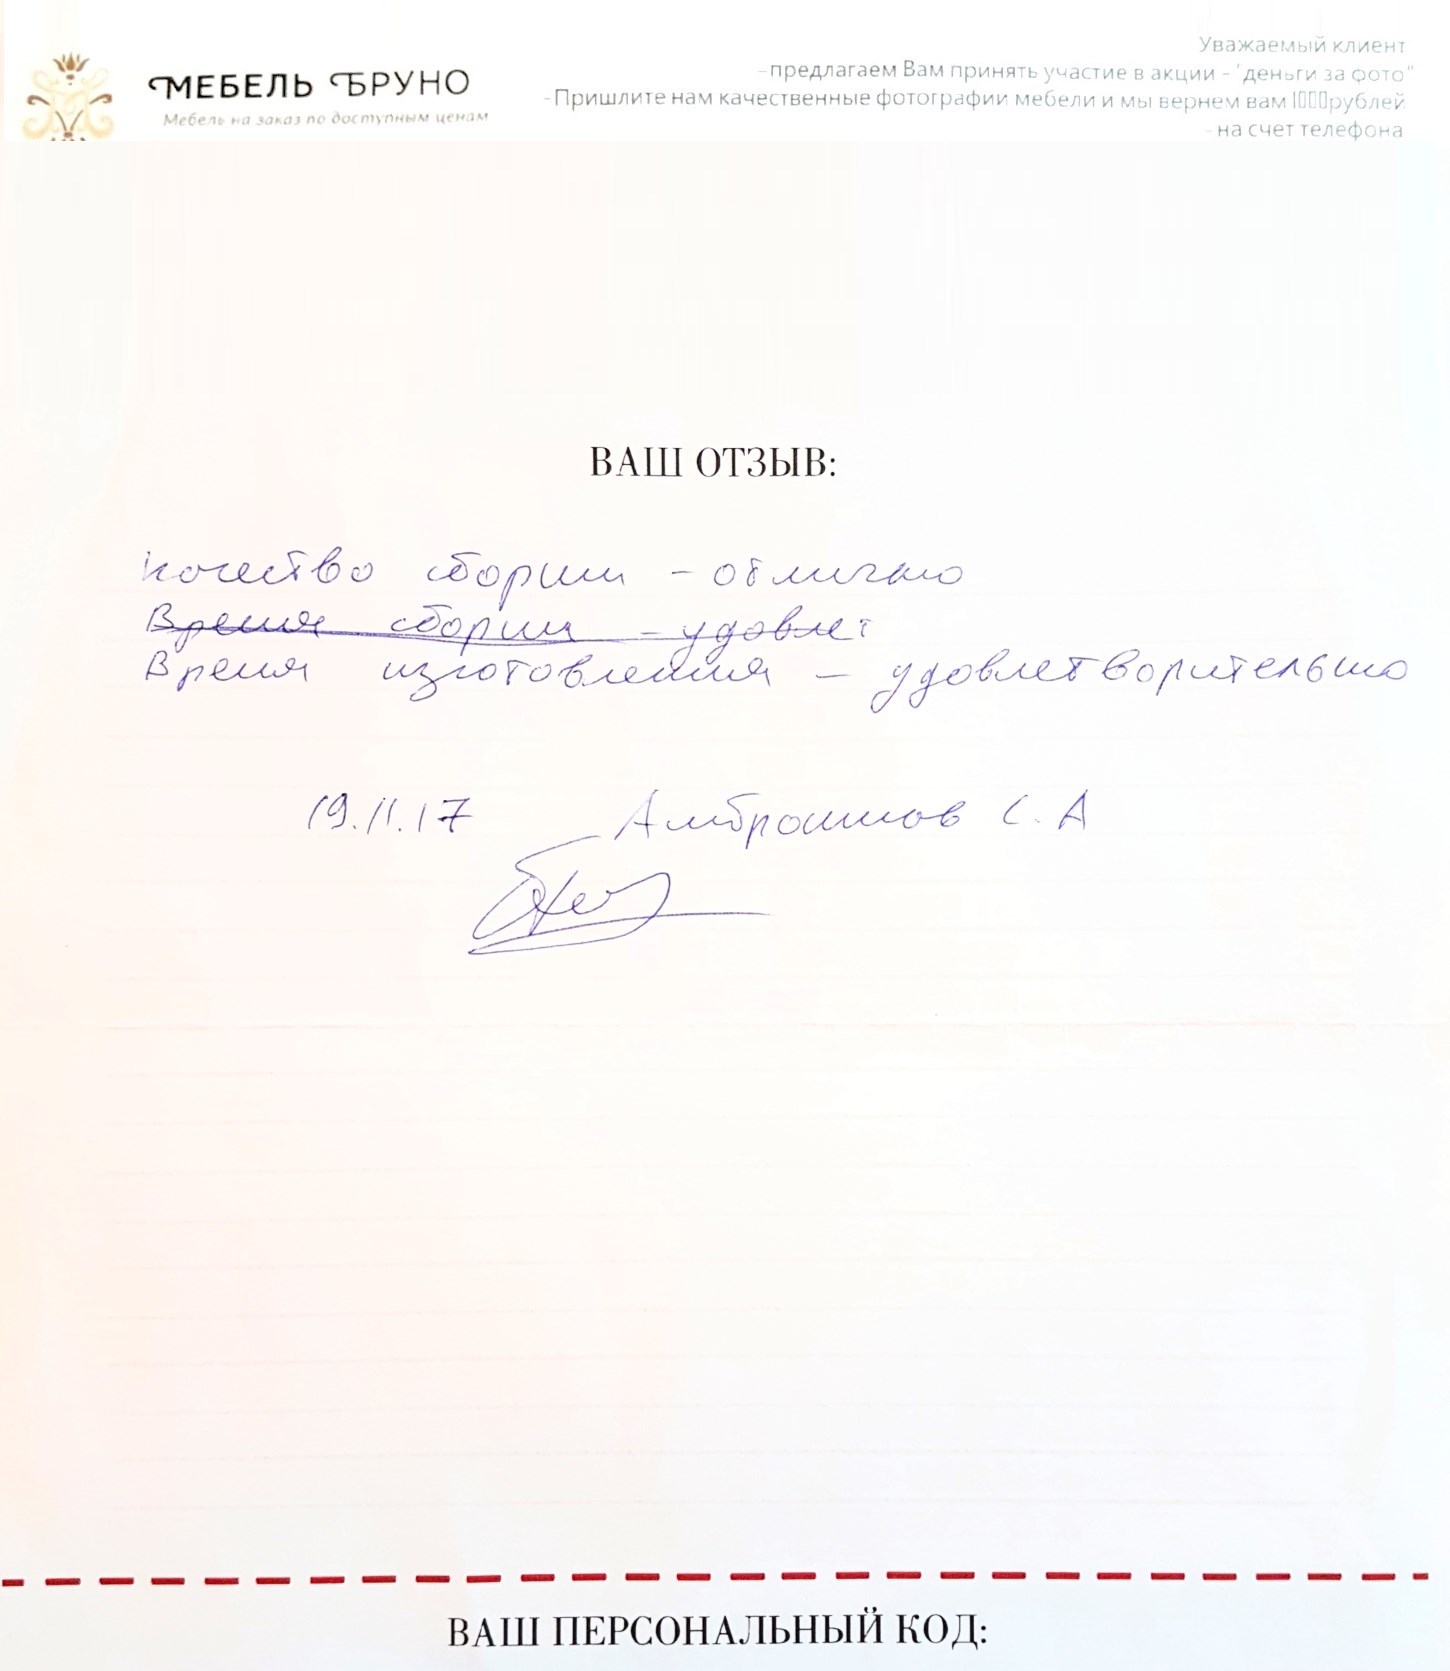 МЕБЕЛЬ БРУНО
Мебель на заказ по доступным ценам
Уважаемый клиент
-предлагаем Вам принять участие в акции - "деньги за фото"
-Пришлите нам качественные фотографии мебели и мы вернем вам 1000рублей
- на счет телефона
ВАШ ОТЗЫВ:
Качество сборки - отлично
Время сборки - удовлет
Время изготовления - удовлетворительно
19.11.17 С.А
ВАШ ПЕРСОНАЛЬНЫЙ КОД: